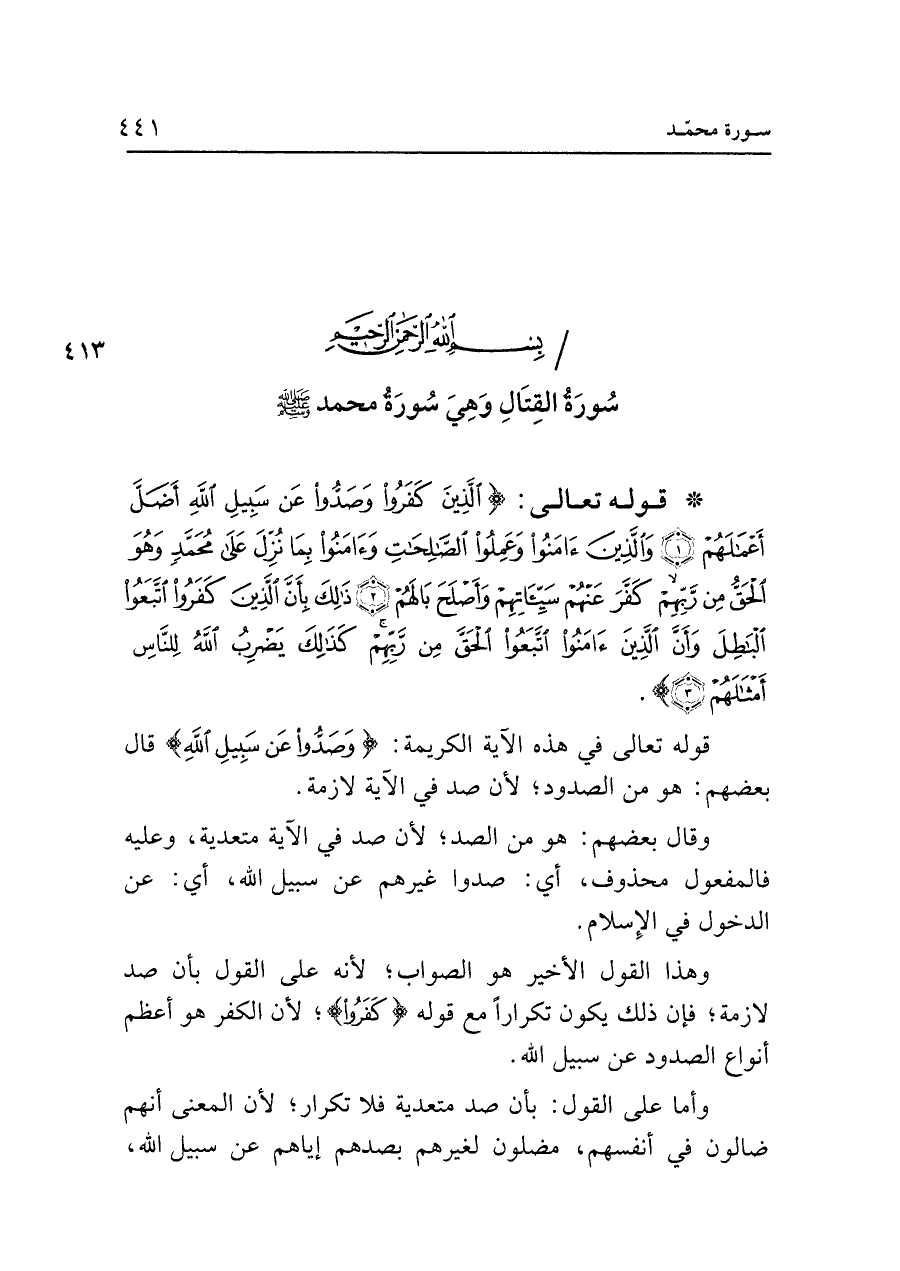 سورة محمّد ٤٤١
/ بِسْمِ ٱللَّهِ ٱلرَّحْمَٰنِ ٱلرَّحِيمِ ٤١٣
سُورَةُ القِتَالِ وَهِيَ سُورَةُ محمد ﷺ
* قوله تعالى: ﴿ٱلَّذِينَ كَفَرُوا۟ وَصَدُّوا۟ عَن سَبِيلِ ٱللَّهِ أَضَلَّ
أَعْمَٰلَهُمْ ۝١ وَٱلَّذِينَ ءَامَنُوا۟ وَعَمِلُوا۟ ٱلصَّٰلِحَٰتِ وَءَامَنُوا۟ بِمَا نُزِّلَ عَلَىٰ مُحَمَّدٍ وَهُوَ
ٱلْحَقُّ مِن رَّبِّهِمْ ۙ كَفَّرَ عَنْهُمْ سَيِّـَٔاتِهِمْ وَأَصْلَحَ بَالَهُمْ ۝٢ ذَٰلِكَ بِأَنَّ ٱلَّذِينَ كَفَرُوا۟ ٱتَّبَعُوا۟
ٱلْبَٰطِلَ وَأَنَّ ٱلَّذِينَ ءَامَنُوا۟ ٱتَّبَعُوا۟ ٱلْحَقَّ مِن رَّبِّهِمْ ۚ كَذَٰلِكَ يَضْرِبُ ٱللَّهُ لِلنَّاسِ
أَمْثَٰلَهُمْ ۝٣﴾.
قوله تعالى في هذه الآية الكريمة: ﴿وَصَدُّوا۟ عَن سَبِيلِ ٱللَّهِ﴾ قال
بعضهم: هو من الصدود؛ لأن صد في الآية لازمة.
وقال بعضهم: هو من الصد؛ لأن صد في الآية متعدية، وعليه
فالمفعول محذوف، أي: صدوا غيرهم عن سبيل الله، أي: عن
الدخول في الإسلام.
وهذا القول الأخير هو الصواب؛ لأنه على القول بأن صد
لازمة؛ فإن ذلك يكون تكراراً مع قوله ﴿كَفَرُوا۟﴾؛ لأن الكفر هو أعظم
أنواع الصدود عن سبيل الله.
وأما على القول: بأن صد متعدية فلا تكرار؛ لأن المعنى أنهم
ضالون في أنفسهم، مضلون لغيرهم بصدهم إياهم عن سبيل الله،